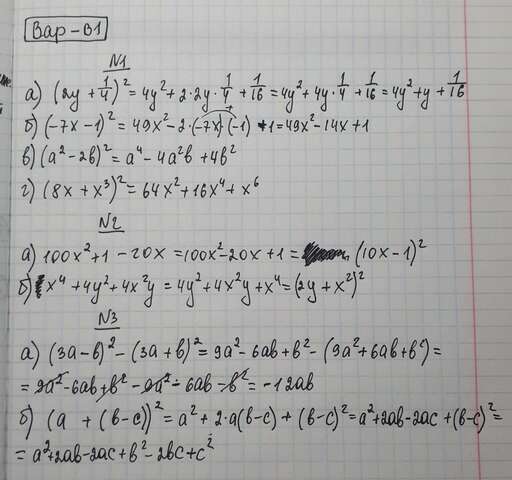 Вар-В1
N1
а) (2y + 1/4)² = 4y² + 2·2y·1/4 + 1/16 = 4y² + 4y·1/4 + 1/16 = 4y² + y + 1/16
б) (-7x - 1)² = 49x² - 2·(-7x)·(-1) + 1 = 49x² - 14x + 1
в) (a² - 2b)² = a⁴ - 4a²b + 4b²
г) (8x + x³)² = 64x² + 16x⁴ + x⁶
N2
а) 100x² + 1 - 20x = 100x² - 20x + 1 = (10x - 1)²
б) x⁴ + 4y² + 4x²y = 4y² + 4x²y + x⁴ = (2y + x²)²
N3
а) (3a - b)² - (3a + b)² = 9a² - 6ab + b² - (9a² + 6ab + b²) =
= 9a² - 6ab + b² - 9a² - 6ab - b² = -12ab
б) (a + (b - c))² = a² + 2·a(b - c) + (b - c)² = a² + 2ab - 2ac + (b - c)² =
= a² + 2ab - 2ac + b² - 2bc + c²